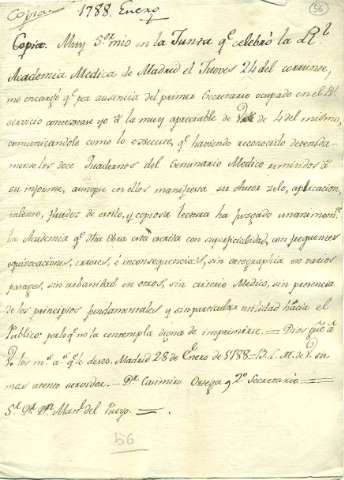 Copia 1788. Enero 56
Copia. Muy S.or mio en la Junta q.e celebró la R.l
Academia Medica de Madrid el Jueves 24 del corriente,
me encargó q.e por ausencia del primer Secretario ocupado en el R.l
servicio contextase yo á la muy apreciable de de 4 del mismo,
comunicandole como lo executo, q.e haviendo reconocido
los doce Quadernos del Semanario Medico remitidos á
su informe, aunque en ellos manifiesta su Autor zelo, aplicacion,
talento, fluidez de estilo, y copiosa lectura ha juzgado unanimem.te
la Academia q.e dha Obra está escrita con superficialidad, con pequeñas
equivocaciones, errores, é inconsequencias, sin ortographia en varios
parages, sin urbanidad en otros, sin criterio Medico, sin
de los principios fundamentales y sin particular utilidad hácia el
Publico por lo q.e no la contempla digna de imprimirse. = Dios gue á
V. los m.s a.s q.e le deseo. Madrid 28 de Enero de 1788 = B. L. M. de V. su
mas atento servidor. = D.r Casimiro Ortega 2.º Secretario =
S.r D.n Man.l del =
56